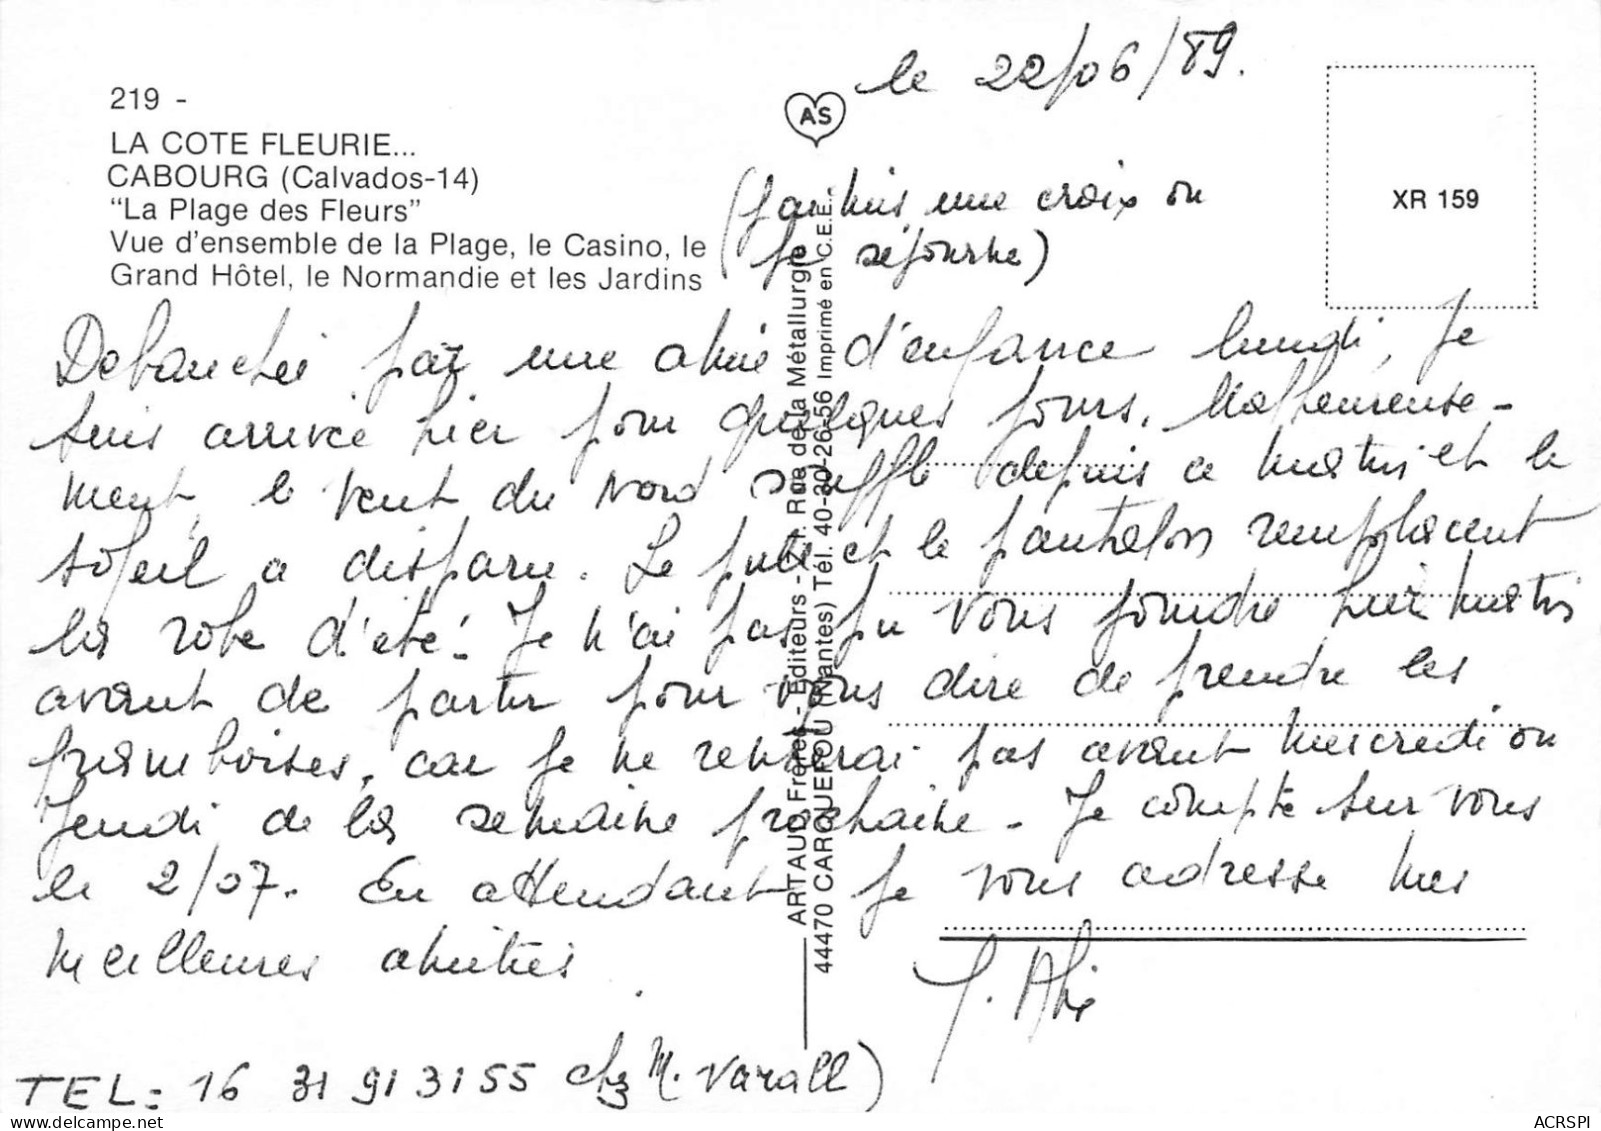 le 22/06/89.
219 -
LA COTE FLEURIE...
CABOURG (Calvados-14)
"La Plage des Fleurs"
Vue d'ensemble de la Plage, le Casino, le
Grand Hôtel, le Normandie et les Jardins
AS
XR 159
(J'ai mis une croix ou
je séjourne)
Debauchée par une amie d'enfance lundi, je
suis arrivée hier pour quelques jours. Malheureuse-
ment, le vent du Nord souffle depuis ce matin et le
soleil a disparu. Le pull et le pantalon remplacent
la robe d'été! Je n'ai pas pu vous joindre hier matin
avant de partir pour vous dire de prendre les
framboises, car je ne rentrerai pas avant mercredi ou
Jeudi de la semaine prochaine - Je compte sur vous
le 2/07. En attendant je vous adresse mes
meilleures amitiés.
TEL: 16 31 91 31 55 chez M. Varall)
ARTAUD Frères - Editeurs - Z.I. Rue de la Métallurgie
44470 CARQUEFOU (Nantes) Tél. 40-30-26-56 Imprimé en C.E.E.
ACRSPI